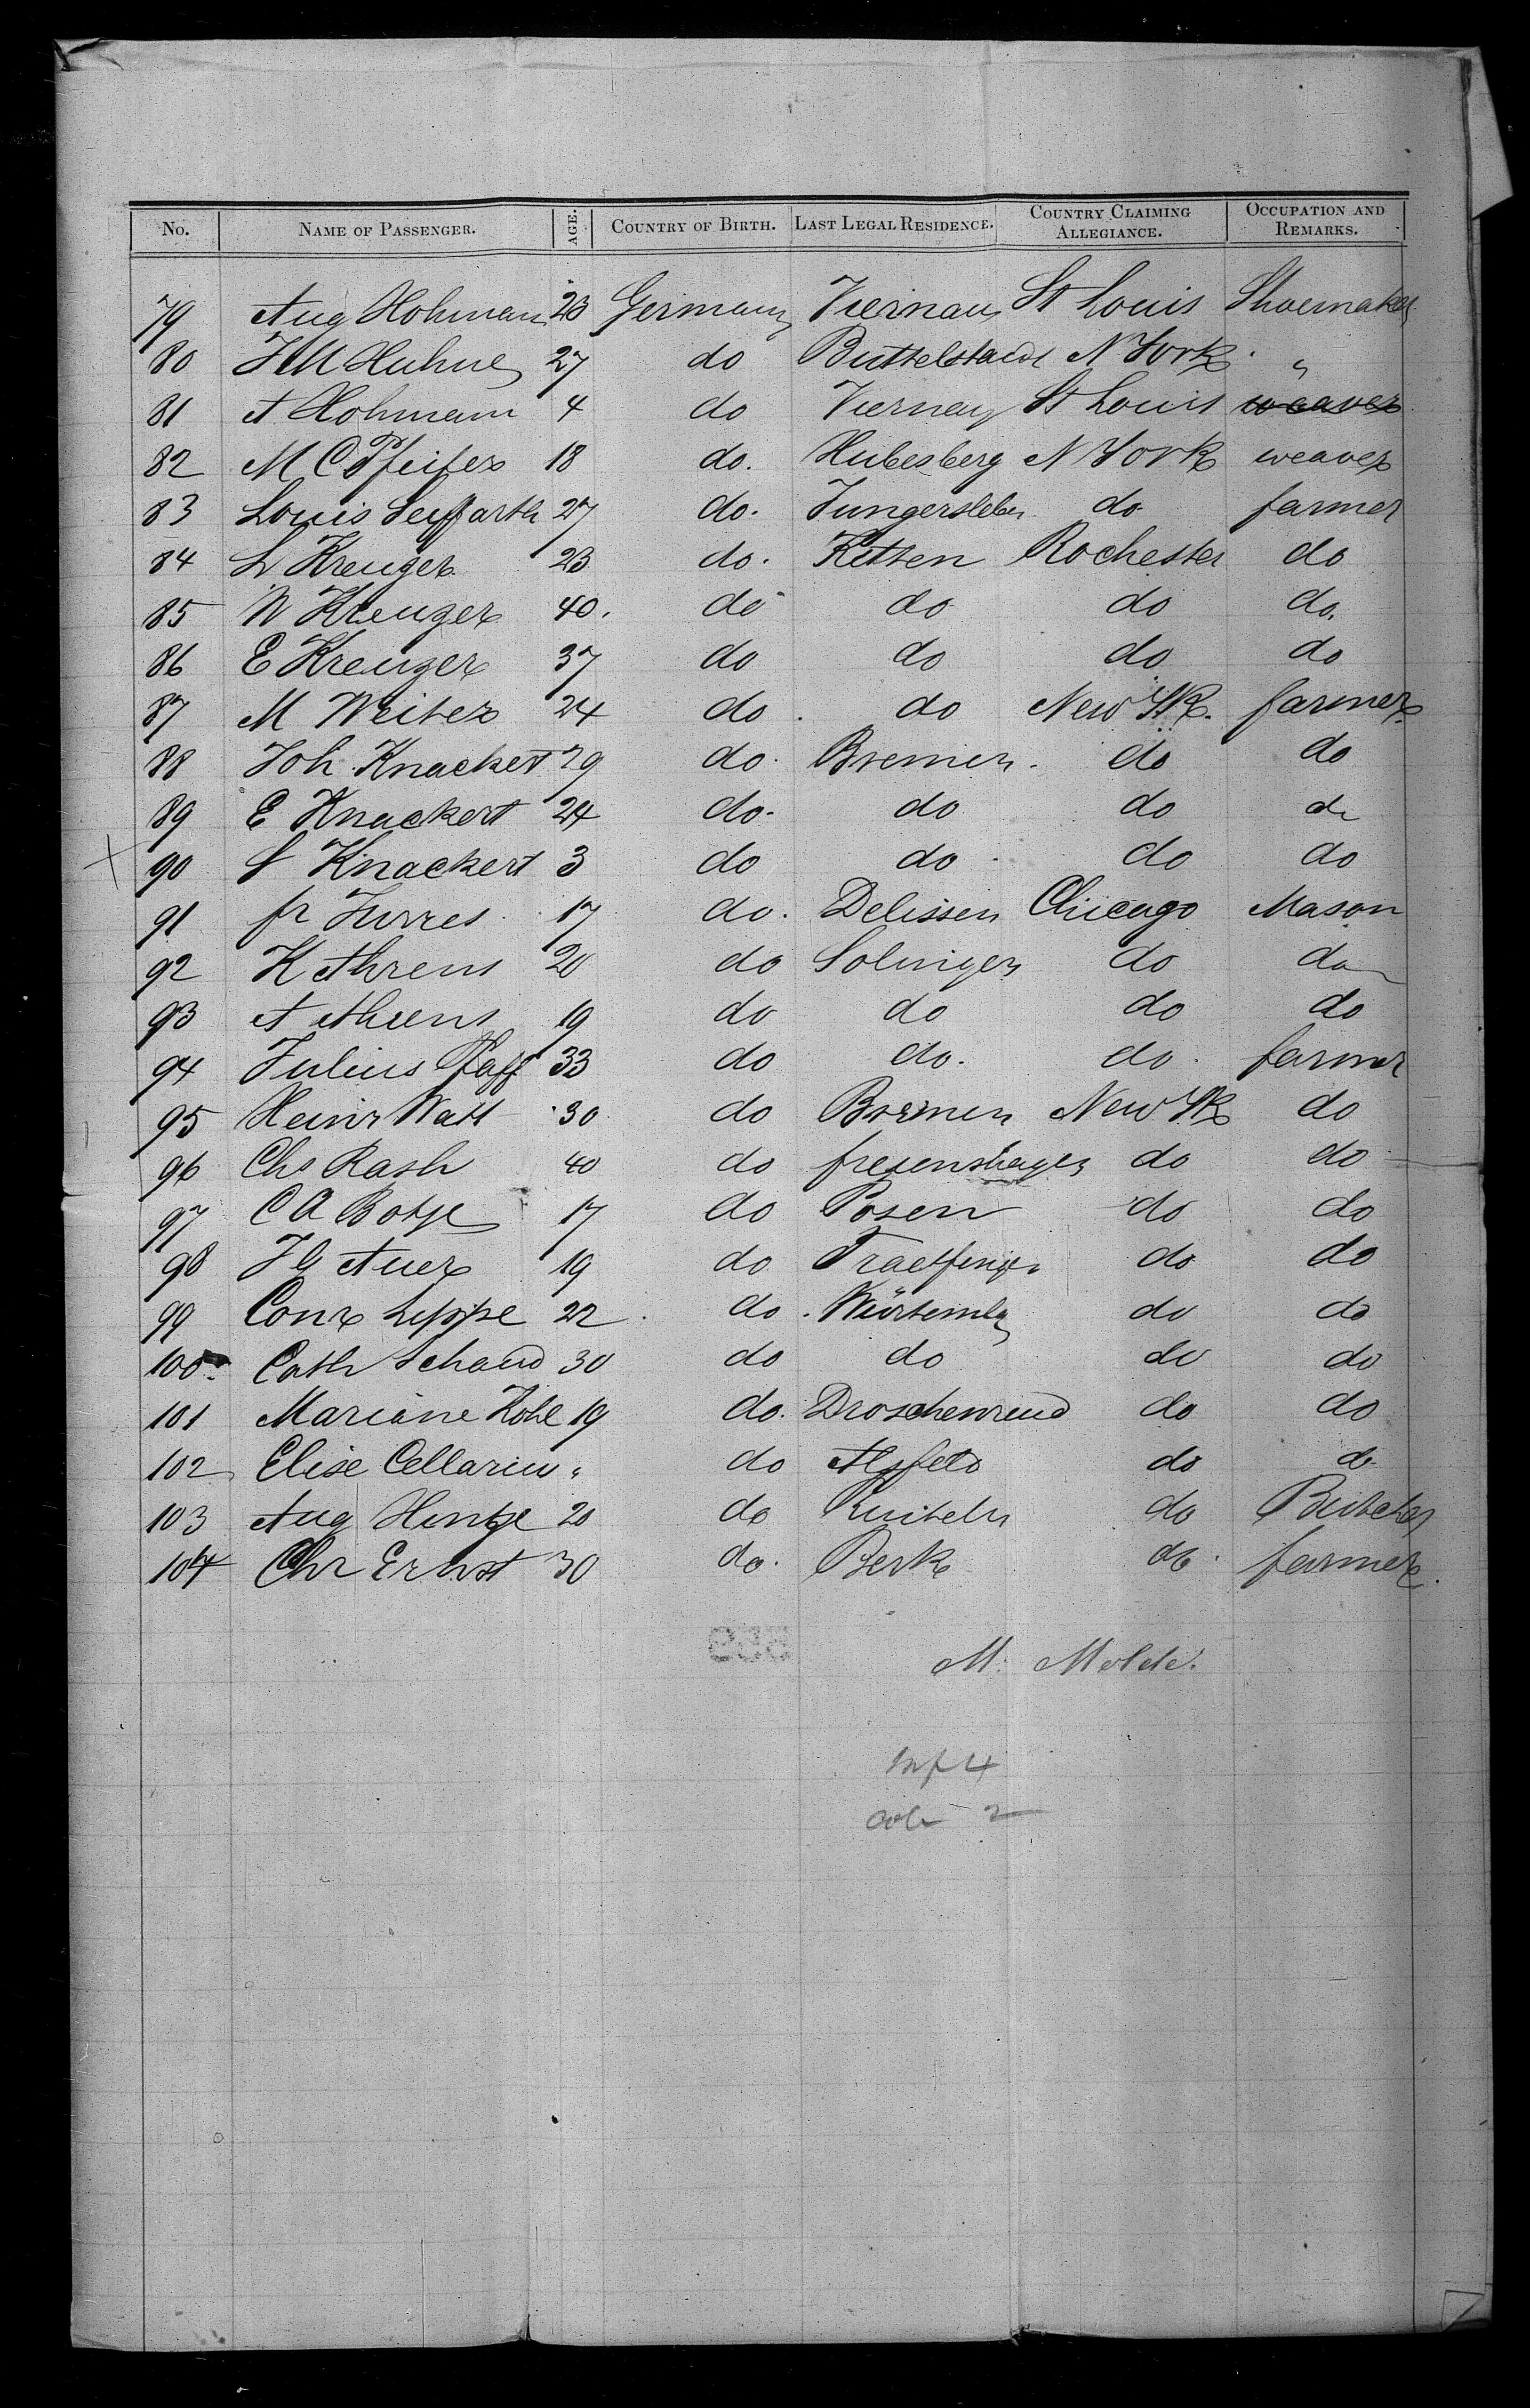 No. NAME OF PASSENGER. AGE. COUNTRY OF BIRTH. LAST LEGAL RESIDENCE. COUNTRY CLAIMING ALLEGIANCE. OCCUPATION AND REMARKS.
79 Aug Hohmann 23 Germany Viernau St Louis Shoemaker
80 J M Huhne 27 do Buttelstaedt N York "
81 A Hohmann 4 do Viernau St Louis weaver
82 M C Pfeifer 18 do. Hubesberg N York weaver
83 Louis Seyffarth 27 do. Jungersleben do farmer
84 L Kreuger 23 do. Ketten Rochester do
85 W Kreuger 40. do do do do.
86 E Kreuger 37 do do do do
87 M Weiter 24 do. do New Yk. farmer
88 Joh Knackert 29 do. Bremen. do do
89 E Knackert 24 do. do do do
90 S Knackert 3 do do do do
91 fr Jurres 17 do. Delissen Chicago Mason
92 K Ahrens 20 do Solingen do do
93 A Ahrens 19 do do do do
94 Julius Pfaff 33 do do. do. farmer
95 Heinr Watt 30 do Bremen New Yk do
96 Chs Rash 40 do fresenshagen do do
97 C A Botze 17 do Posen do do
98 J G Auer 19 do do do
99 Conr Leppe 22 do. Würtemberg do do
100 Cath Schaud 30 do do do do
101 Mariane Kohl 19 do. Droschenreud do do
102 Elise Cellarius " do Alsfeld do do
103 Aug Hintze 20 do do Butcher
104 Chr Ernst 30 do. Berka do. farmer.
M. Molde.
Inf 4
2